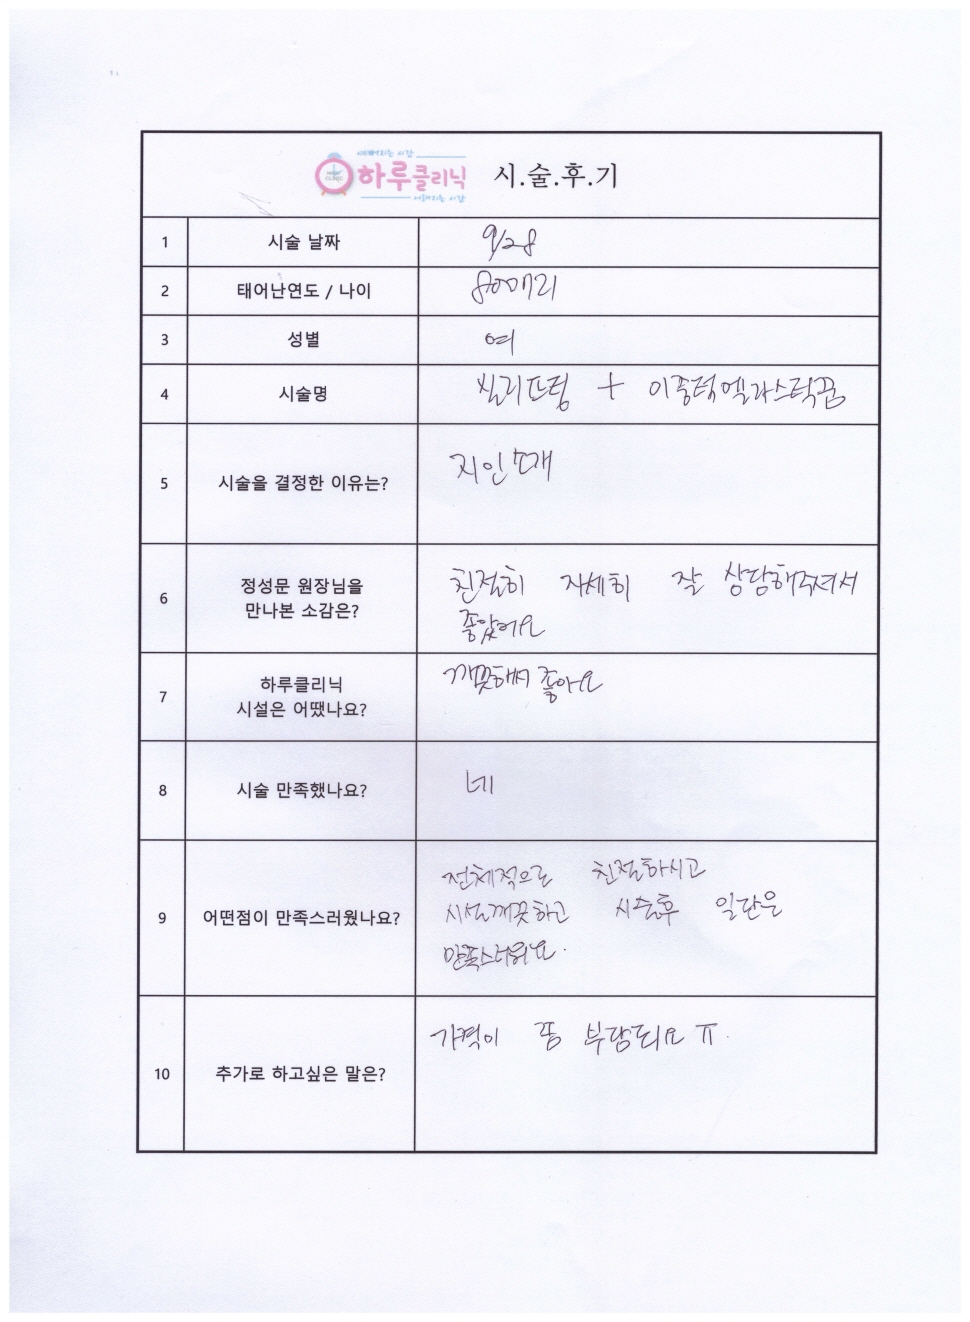 예뻐지는 시간
하루클리닉
어려지는 시간
시.술.후.기
1 시술 날짜 9/28
2 태어난연도 / 나이
3 성별 여
4 시술명 실리프팅 + 이중턱엘라스틱꿈
5 시술을 결정한 이유는? 지인소개
6 정성문 원장님을
만나본 소감은?
친절히 자세히 잘 상담해주셔서
좋았어요
7 하루클리닉
시설은 어땠나요?
깨끗해서 좋아요
8 시술 만족했나요? 네
9 어떤점이 만족스러웠나요?
전체적으로 친절하시고
시설깨끗하고 시술후 일단은
만족스러워요.
10 추가로 하고싶은 말은?
가격이 쫌 부담되요 ㅠ.